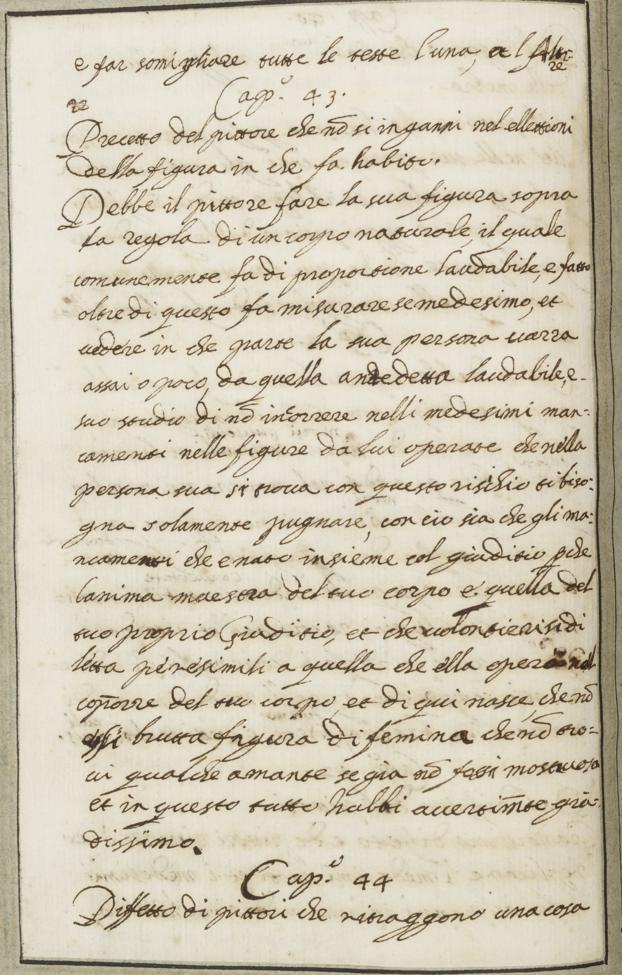 e far somigliare tutte le teste l'una, al Altre
Cap.º 43.
Precetto del pittore che nō si inganni nel ellettioni
della figura in che fa habito.
Debbe il pittore fare la sua figura sopra
la regola di un corpo naturale, il quale
comunemente fa di proportione laudabile, e fatto
oltre di questo fa misurare se medesimo, et
vedere in che parte la sua persona varra
assai o poco, da quella antedetta laudabile, e
suo studio di nō incorrere nelli medesimi man-
camenti nelle figure da lui operate che nella
persona sua si trova con questo rischio ti biso:
gna solamente pugnare, con cio sia che gli ma:
ncamenti che e nato insieme col giuditio pche
lanima maestra del tuo corpo e quella del
tuo proprio Giuditio, et che volontieri si di
letta per esimili a quella che ella opero nel
coporre del tuo corpo et di qui nasce, che nō
brutta figura di femina che nō tro=
vi qualche amante se gia nō fosse mostruosa
et in questo tutto habbi avertimte grā
dissimo.
Cap.º 44
Diffetto di pittori che ritraggono una cosa